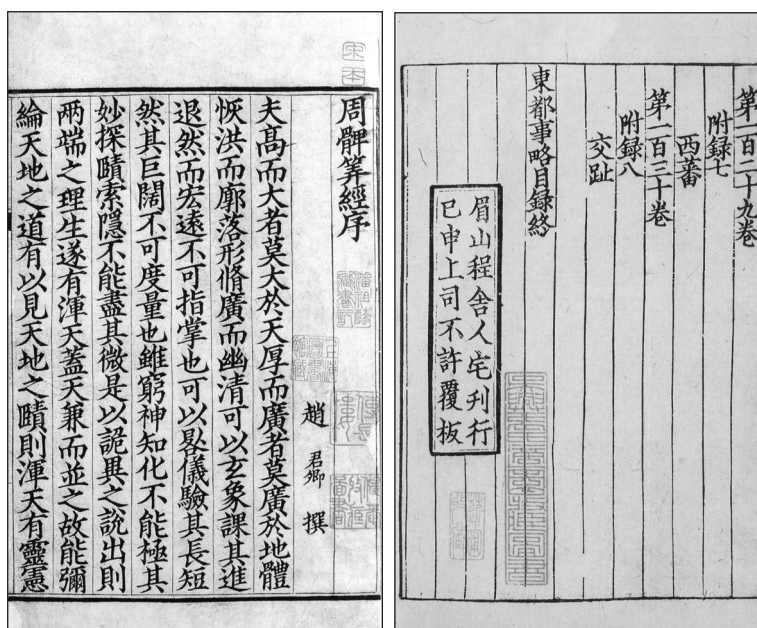 宋本
周髀筭經序
趙君卿撰
夫髙而大者莫大於天厚而廣者莫廣於地體
恢洪而廓落形脩廣而幽清可以玄象課其進
退然而宏遠不可指掌也可以晷儀驗其長短
然其巨闊不可度量也雖窮神知化不能極其
妙探賾索隱不能盡其微是以詭異之說出則
兩端之理生遂有渾天蓋天兼而並之故能彌
綸天地之道有以見天地之賾則渾天有靈憲
第一百二十九卷
附録七
西蕃
第一百三十卷
附録八
交趾
東都事略目録終
眉山程舍人宅刊行
已申上司不許覆板